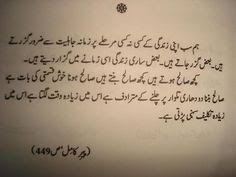 ہم سب اپنی زندگی کے کسی نہ کسی مرحلے پر زمانہ جاہلیت سے ضرور گزرتے
ہیں۔ بعض گزر جاتے ہیں۔ بعض ساری زندگی اسی زمانے میں گزار دیتے ہیں۔
کچھ صالح ہوتے ہیں کچھ صالح بنتے ہیں صالح ہونا خوش قسمتی کی بات ہے
صالح بننا دو دھاری تلوار پر چلنے کے مترادف ہے اس میں زیادہ وقت لگتا ہے اس میں
زیادہ تکلیف سہنی پڑتی ہے۔
(پیر کامل ص 449)